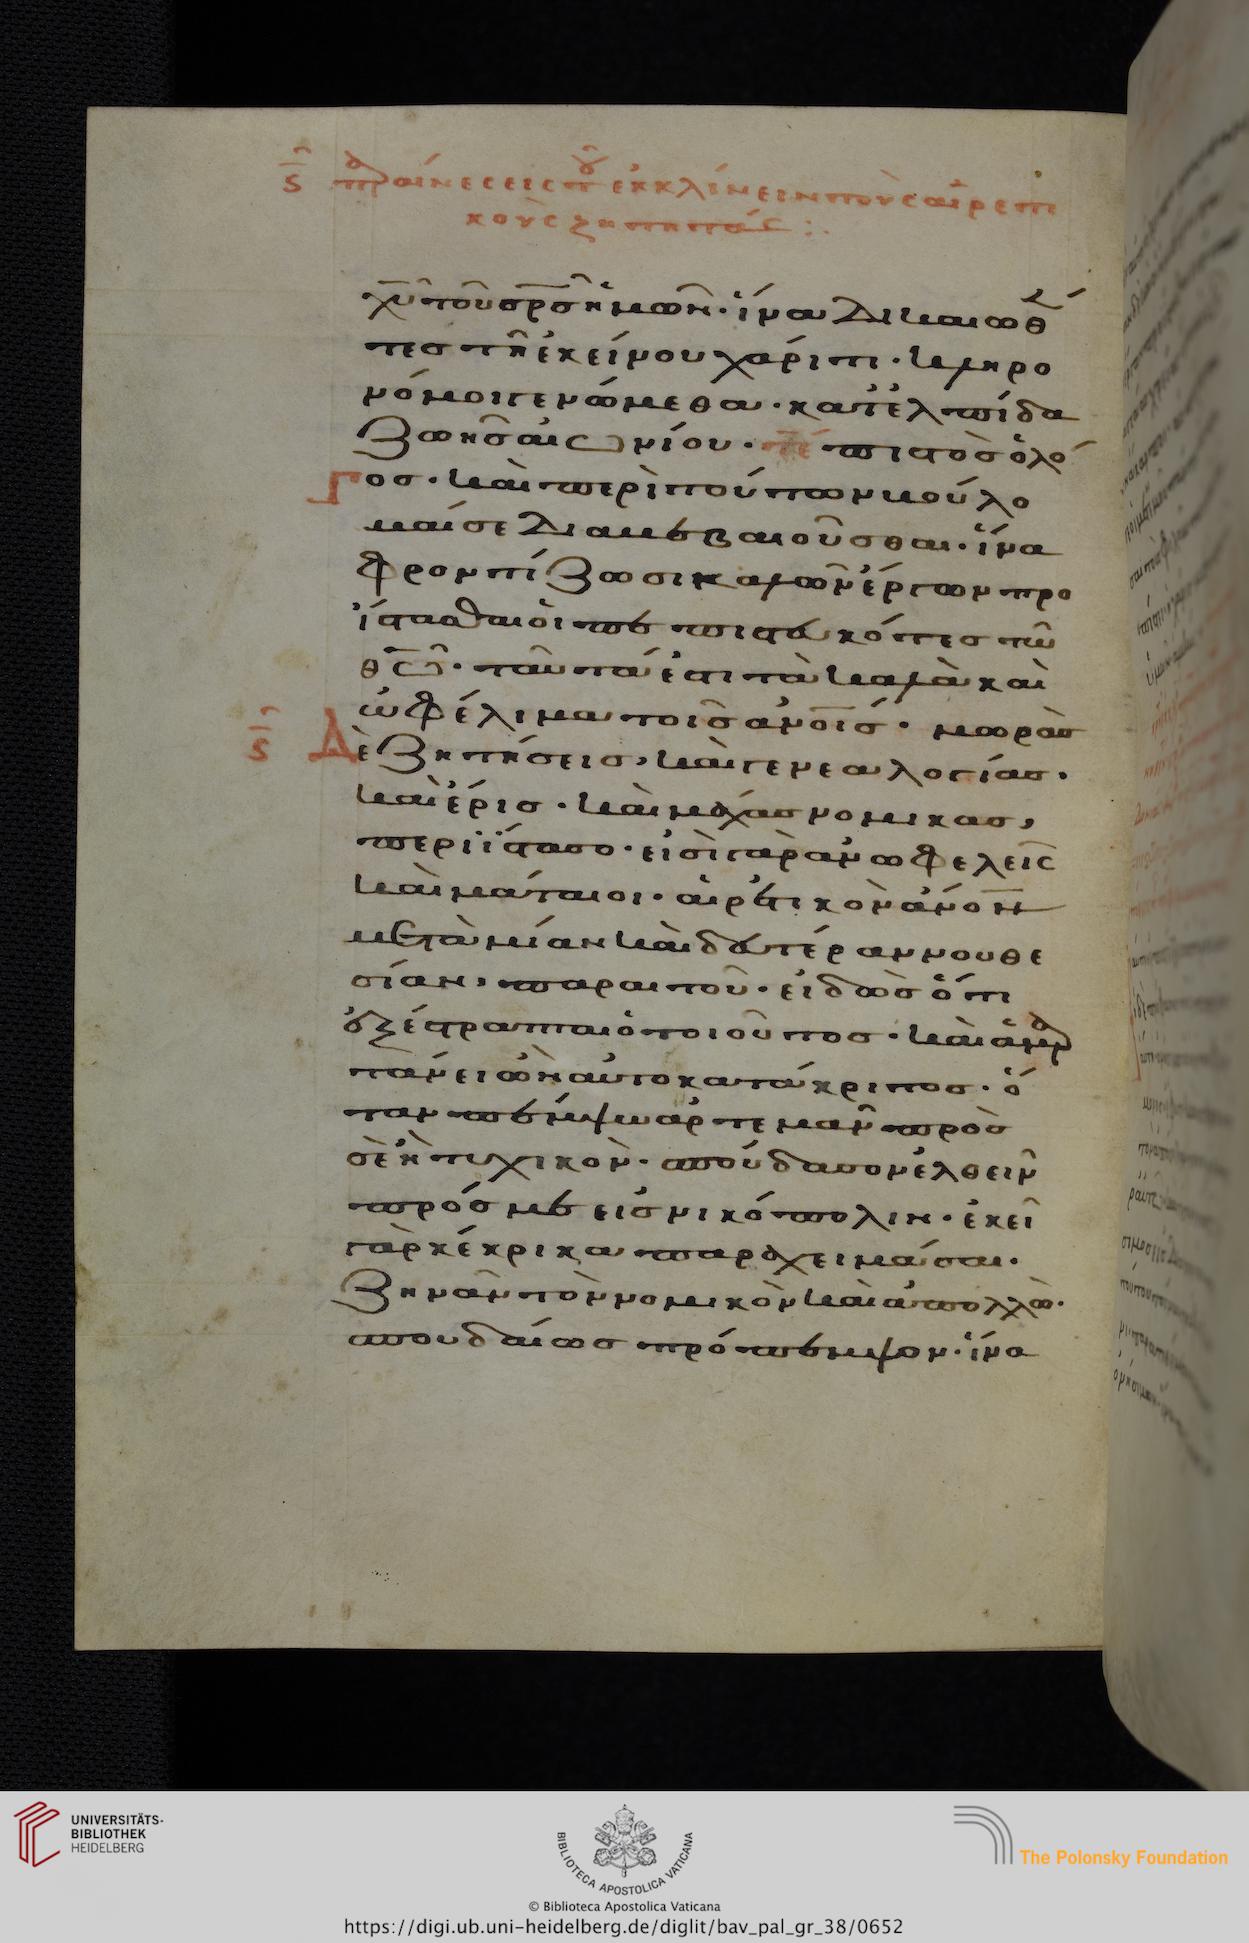 ϛ παραίνεσεις τοῦ ἐκκλίνειν τοὺς αἱρετι
κοὺς ζητητάς :·
χυ του σρσ ἡμῶν· ἵνα δικαιωθέν
τες τῆ ἐκείνου χάριτι· κληρο
νόμοι γενώμεθα· κατ' ἐλπίδα
ζωῆς αἰωνίου· τε πιστὸς ὁ λό
γος· καὶ περὶ τούτων βούλο
μαί σε διαβεβαιοῦσθαι· ἵνα
φροντίζωσι καλῶν ἔργων προ
ΐστασθαι οἱ πεπιστευκότες τῶ
θω· ταῦτά ἐστι τὰ καλὰ καὶ
ὠφέλιμα τοῖς ἀνοις· μωρὰς
ϛ δὲ ζητήσεις, καὶ γενεαλογίας·
καὶ ἔρις· καὶ μάχας νομικας,
περιΐστασο· εἰσὶ γὰρ ἀνωφελεῖς
καὶ μάταιοι· αἱρετικὸν ἄνον
μετὰ μίαν καὶ δευτέραν νουθε
σίαν, παραιτοῦ· εἰδὼς ὅτι
ἐξέστραπται ὁ τοιοῦτος· καὶ ἁμαρ
τάνει ὢν αὐτοκατάκριτος· ὅ
ταν πέμψω ἀρτεμᾶν πρὸς
σὲ ἢ τυχικὸν· σπούδασον ἐλθεῖν
πρός με εἰς νικόπολιν· ἐκεῖ
γὰρ κέκρικα παραχειμάσαι·
ζηνᾶν τὸν νομικὸν καὶ ἀπολλὼ·
σπουδαίως πρόπεμψον· ἵνα
UNIVERSITÄTS-
BIBLIOTHEK
HEIDELBERG
BIBLIOTECA APOSTOLICA VATICANA
The Polonsky Foundation
© Biblioteca Apostolica Vaticana
https://digi.ub.uni-heidelberg.de/diglit/bav_pal_gr_38/0652